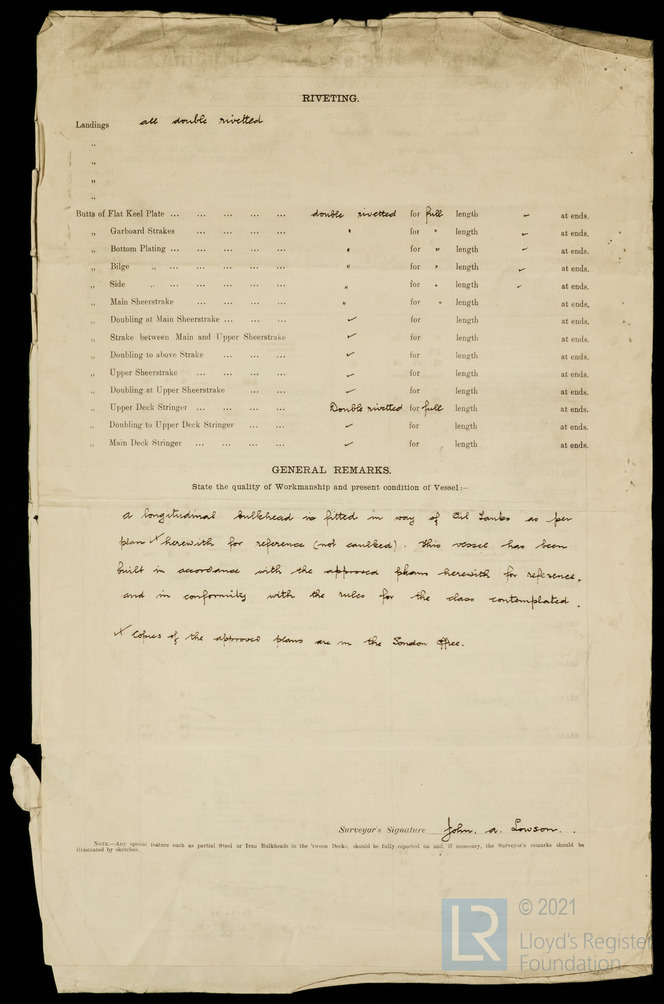 RIVETING.
Landings all double rivetted
„
„
„
„
Butts of Flat Keel Plate ... ... ... ... ... double rivetted for full length ✓ at ends.
„ Garboard Strakes ... ... ... ... " for " length ✓ at ends.
„ Bottom Plating ... ... ... ... ... " for " length ✓ at ends.
„ Bilge „ ... ... ... ... ... " for " length ✓ at ends.
„ Side „ ... ... ... ... ... " for " length ✓ at ends.
„ Main Sheerstrake ... ... ... ... " for " length at ends.
„ Doubling at Main Sheerstrake ... ... ... ✓ for length at ends.
„ Strake between Main and Upper Sheerstrake ✓ for length at ends.
„ Doubling to above Strake ... ... ... ✓ for length at ends.
„ Upper Sheerstrake ... ... ... ... ✓ for length at ends.
„ Doubling at Upper Sheerstrake ... ... ✓ for length at ends.
„ Upper Deck Stringer ... ... ... ... Double rivetted for full length at ends.
„ Doubling to Upper Deck Stringer ... ... ✓ for length at ends.
„ Main Deck Stringer ... ... ... ... ✓ for length at ends.
GENERAL REMARKS.
State the quality of Workmanship and present condition of Vessel:—
A longitudinal bulkhead is fitted in way of Oil Tanks as per
plan x herewith for reference (not caulked). This vessel has been
built in accordance with the approved plans herewith for reference,
and in conformity with the rules for the class contemplated.
x Copies of the approved plans are in the London Office.
Surveyor's Signature John. A. Lowson.
NOTE.—Any special feature such as partial Steel or Iron Bulkheads in the 'tween Decks, should be fully reported on and, if necessary, the Surveyor's remarks should be
illustrated by sketches.
LR © 2021
Lloyd's Register
Foundation